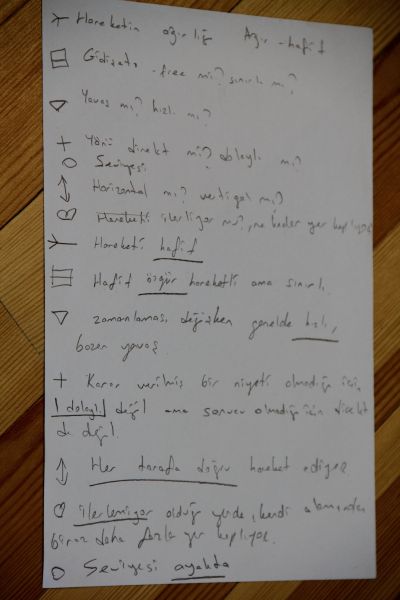 Hareketin ağırlığı Ağır - hafif
Gidişatı - free mi? sınırlı mı?
Yavaş mı? hızlı mı?
Yönü direkt mi? dolaylı mı?
Seviyesi
Horizontal mı? vertigal mı?
Hareketi ilerliyor mu?, ne kadar yer kaplıyor
Hareketi hafif
Hafif özgür hareketli ama sınırlı.
zamanlaması değişken genelde hızlı,
bazen yavaş
Karar verilmiş bir niyeti olmadığı için
dolaylı değil ama sonucu olmadığı için direkt
de değil.
Her tarafa doğru hareket ediyor
ilerlemiyor olduğu yerde, kendi alanından
biraz daha fazla yer kaplıyor.
Seviyesi ayakta